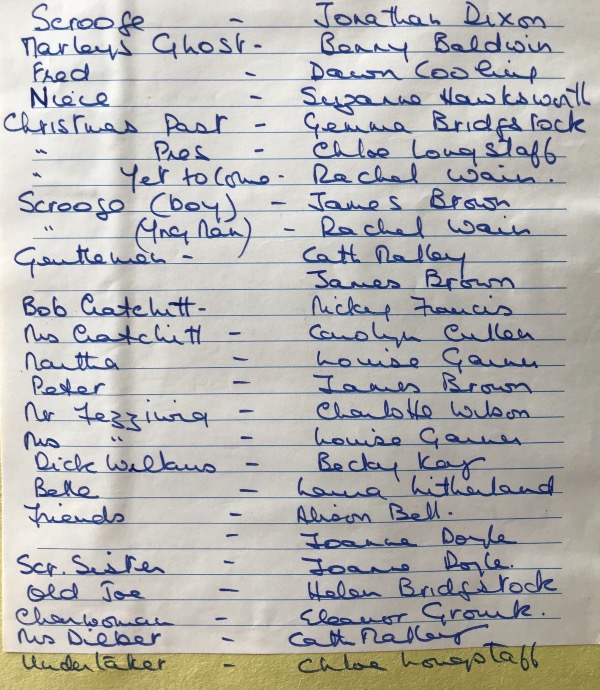 Scrooge - Jonathan Dixon
Marleys Ghost - Benny Baldwin
Fred - Dawn Cooling
Niece - Suzanne Hawksworth
Christmas Past - Gemma Bridgstock
" Pres - Chloe Longstaff
" Yet to Come - Rachel Wain.
Scrooge (boy) - James Brown
" (Yng Man) - Rachel Wain
Gentleman - Cath Malley
James Brown
Bob Cratchitt - Nickey Francis
Mrs Cratchitt - Carolyn Cullen
Martha - Louise Garner
Peter - James Brown
Mr Fezziwig - Charlotte Wilson
Mrs " - Louise Garner
Dick Wilkins - Becky Kay
Belle - Litherland
Friends - Alison Bell.
- Joanne Doyle
Scr. Sister - Joanne Doyle.
Old Joe - Helen Bridgstock
Charwoman - Eleanor
Mrs Dilber - Cath Malley
Undertaker - Chloe Longstaff